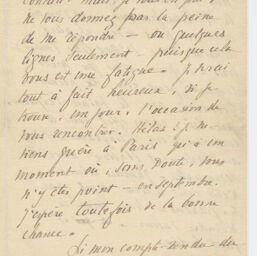 ne vous donnez pas la peine
de me répondre — ou quelques
lignes seulement — puisque cela
vous est une fatigue. Je serai
tout à fait heureux, si je
trouve, un jour, l'occasion de
vous rencontrer. Hélas ! je ne
viens guère à Paris qu'à un
moment où, sans doute, vous
n'y êtes point — en septembre.
J'espère toutefois de la bonne
chance.
Si mon compte-rendu du